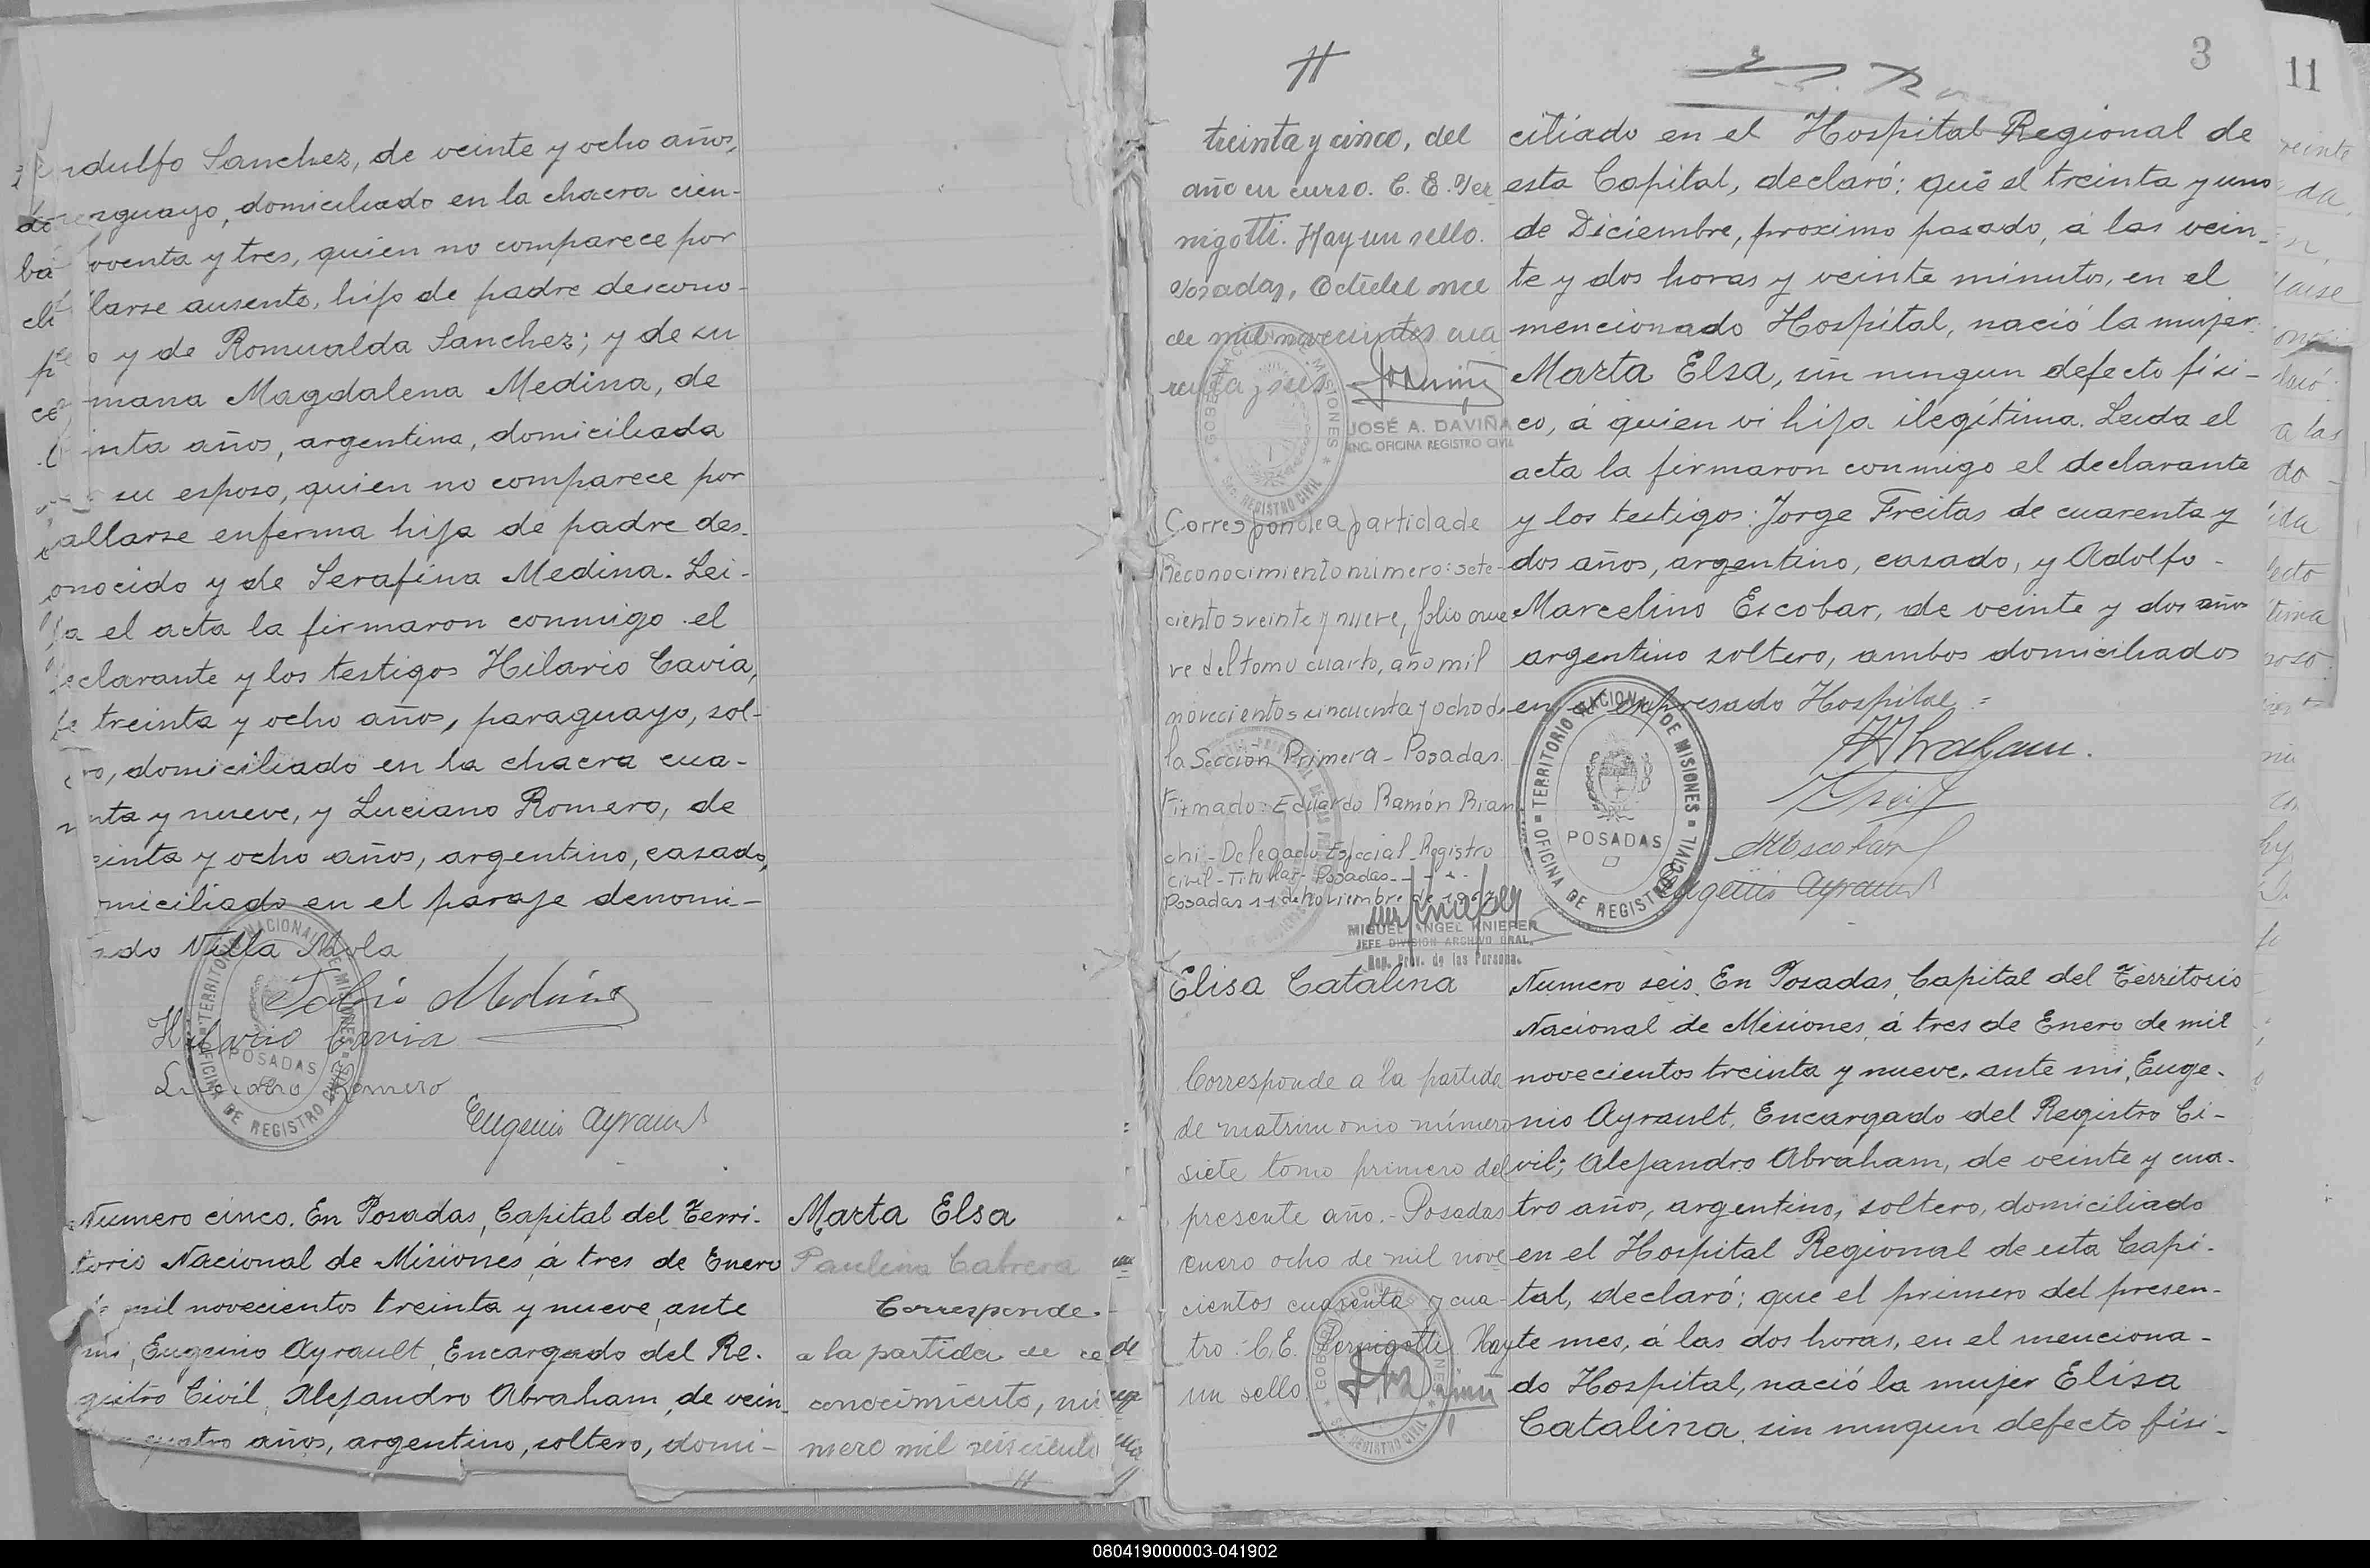 ndulfo Sanchez, de veinte y ocho años,
raguayo, domiciliado en la chacra cien-
noventa y tres, quien no comparece por
llarse ausente, hijo de padre descono-
o y de Romualda Sanchez; y de su
mana Magdalena Medina, de
inta años, argentina, domiciliada
su esposo, quien no comparece por
allarse enferma hija de padre des-
onocido y de Serafina Medina. Lei-
da el acta la firmaron conmigo el
declarante y los testigos Hilario Cavia,
de treinta y ocho años, paraguayo, sol-
ro, domiciliado en la chacra cua-
nta y nueve, y Luciano Romero, de
einta y ocho años, argentino, casado,
miciliado en el paraje denomi-
ado Villa Mola
Medina
Hilario Cavia
Luciano Romero
Eugenio Ayrault
TERRITORIO NACIONAL DE MISIONES
POSADAS
OFICINA DE REGISTRO CIVIL
Numero cinco. En Posadas, Capital del Terri-
torio Nacional de Misiones, á tres de Enero
de mil novecientos treinta y nueve, ante
mi, Eugenio Ayrault, Encargado del Re-
gistro Civil, Alejandro Abraham, de vein-
cuatro años, argentino, soltero, domi-
Marta Elsa
Paulina Cabrera
Corresponde
a la partida de re
conocimiento, nú
mero mil seiscientos
#
3
11
#
treinta y cinco, del
año en curso. C. E. Per
nigotti. Hay un sello.
Posadas, Octubre once
de mil novecientos cua
renta y seis
JOSÉ A. DAVIÑA
ENC. OFICINA REGISTRO CIVIL
Corresponde a partida de
Reconocimiento número: sete-
cientos veinte y nueve, folio nue
ve del tomo cuarto, año mil
novecientos cincuenta y ocho de
la Sección Primera - Posadas.
Firmado: Eduardo Ramón Bian
chi - Delegado Especial - Registro
Civil - Titular - Posadas
Posadas 11 de Noviembre de 1967
MIGUEL ANGEL KNIEPER
JEFE DIVISION ARCHIVO GRAL.
Rep. Prov. de las Personas.
ciliado en el Hospital Regional de
esta Capital, declaró: que el treinta y uno
de Diciembre, proximo pasado, á las vein-
te y dos horas y veinte minutos, en el
mencionado Hospital, nació la mujer
Marta Elsa, sin ningun defecto fisi-
co, á quien vi hija ilegítima. Leida el
acta la firmaron conmigo el declarante
y los testigos: Jorge Freitas de cuarenta y
dos años, argentino, casado, y Adolfo
Marcelino Escobar, de veinte y dos años
argentino soltero, ambos domiciliados
en el expresado Hospital =
AAbraham.
JFreit
AMEscobar
Eugenio Ayrault
TERRITORIO NACIONAL DE MISIONES
POSADAS
OFICINA DE REGISTRO CIVIL
Elisa Catalina
Corresponde a la partida
de matrimonio número
siete tomo primero del
presente año.- Posadas
enero ocho de mil nove
cientos cuarenta y cua-
tro. C. E. Pernigotti. Hay
un sello.
Numero seis. En Posadas, Capital del Territorio
Nacional de Misiones, á tres de Enero de mil
novecientos treinta y nueve, ante mi, Euge-
nio Ayrault, Encargado del Registro Ci-
vil; Alejandro Abraham, de veinte y cua-
tro años, argentino, soltero, domiciliado
en el Hospital Regional de esta Capi-
tal, declaró; que el primero del presen-
te mes, á las dos horas, en el menciona-
do Hospital, nació la mujer Elisa
Catalina, sin ningun defecto fisi-
080419000003-041902